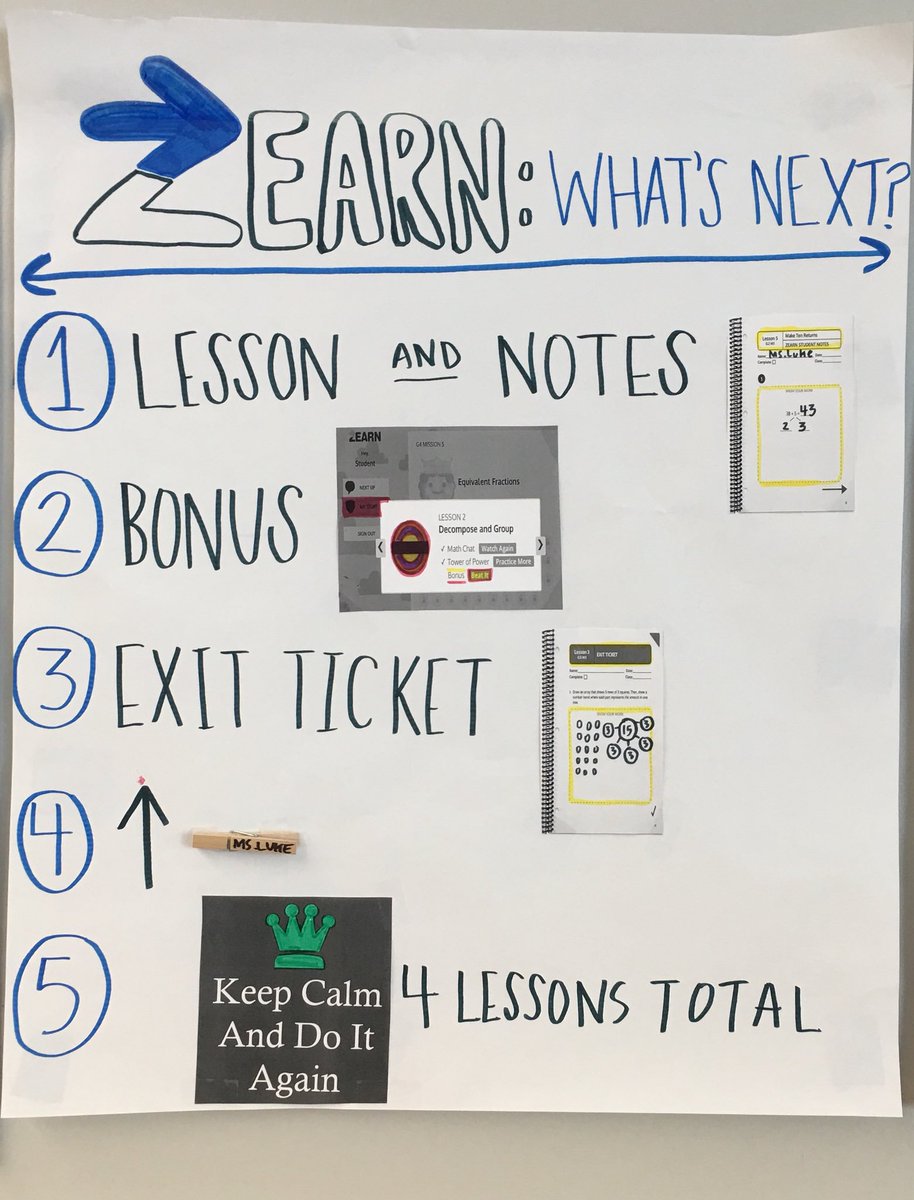 ZEARN: WHAT'S NEXT?
1 LESSON AND NOTES
Lesson 5
Make Ten Returns
ZEARN STUDENT NOTES
Name MS. LUKE Date
Complete Class
1
SHOW YOUR WORK
38 + 5 = 43
2 3
2 BONUS
ZEARN
Hey,
Student
NEXT UP
MY STUFF
SIGN OUT
G4 MISSION 5
Equivalent Fractions
LESSON 2
Decompose and Group
✓ Math Chat Watch Again
✓ Tower of Power Practice More
Bonus Beat It
3 EXIT TICKET
EXIT TICKET
Name Date
Complete Class
SHOW YOUR WORK
3 15 3
3 3 3
4 ↑ MS. LUKE
5
Keep Calm
And Do It
Again
4 LESSONS TOTAL